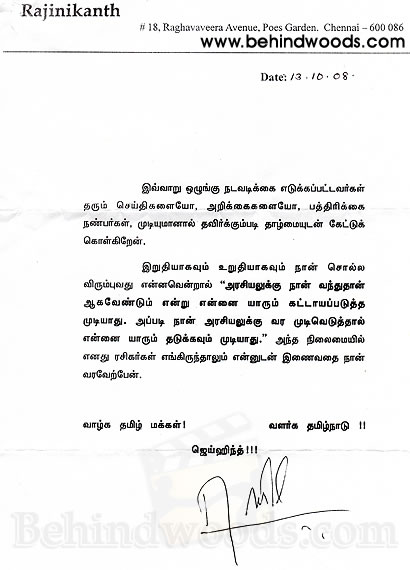 Rajinikanth
# 18, Raghavaveera Avenue, Poes Garden. Chennai – 600 086
www.behindwoods.com
Date: 13.10.08.
இவ்வாறு ஒழுங்கு நடவடிக்கை எடுக்கப்பட்டவர்கள்
தரும் செய்திகளையோ, அறிக்கைகளையோ, பத்திரிக்கை
நண்பர்கள், முடியுமானால் தவிர்க்கும்படி தாழ்மையுடன் கேட்டுக்
கொள்கிறேன்.
இறுதியாகவும் உறுதியாகவும் நான் சொல்ல
விரும்புவது என்னவென்றால் “அரசியலுக்கு நான் வந்துதான்
ஆகவேண்டும் என்று என்னை யாரும் கட்டாயப்படுத்த
முடியாது. அப்படி நான் அரசியலுக்கு வர முடிவெடுத்தால்
என்னை யாரும் தடுக்கவும் முடியாது.” அந்த நிலைமையில்
எனது ரசிகர்கள் எங்கிருந்தாலும் என்னுடன் இணைவதை நான்
வரவேற்பேன்.
வாழ்க தமிழ் மக்கள்! வளர்க தமிழ்நாடு !!
ஜெய்ஹிந்த்!!!
Behindwoods.com